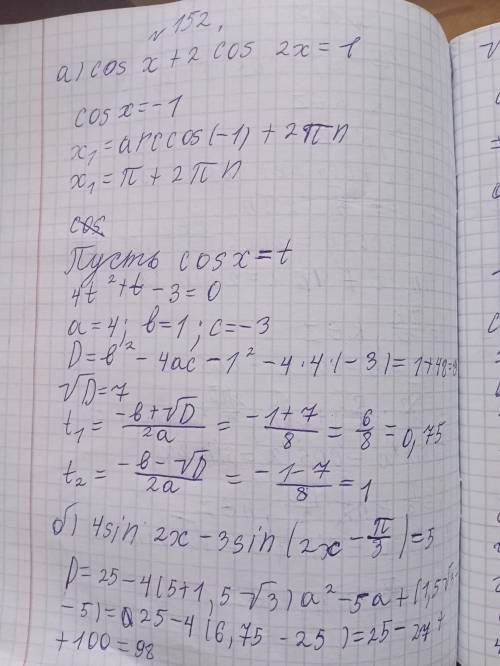 №152.
а) cos x + 2 cos 2x = 1
cos x = -1
x₁ = arccos(-1) + 2πn
x₁ = π + 2πn
cos
Пусть cos x = t
4t² + t - 3 = 0
a = 4; b = 1; c = -3
D = b² - 4ac - 1² - 4 · 4 · (-3) = 1 + 48 =
√D = 7
t₁ = (-b + √D)/2a = (-1 + 7)/8 = 6/8 = 0,75
t₂ = (-b - √D)/2a = (-1 - 7)/8 = 1
б) 4 sin 2x - 3 sin (2x - π/3) = 5
D = 25 - 4(5 + 1,5√3) a² - 5a + (1,5√
-5) = 25 - 4(6,75 - 25) = 25 - 27 +
+ 100 = 98